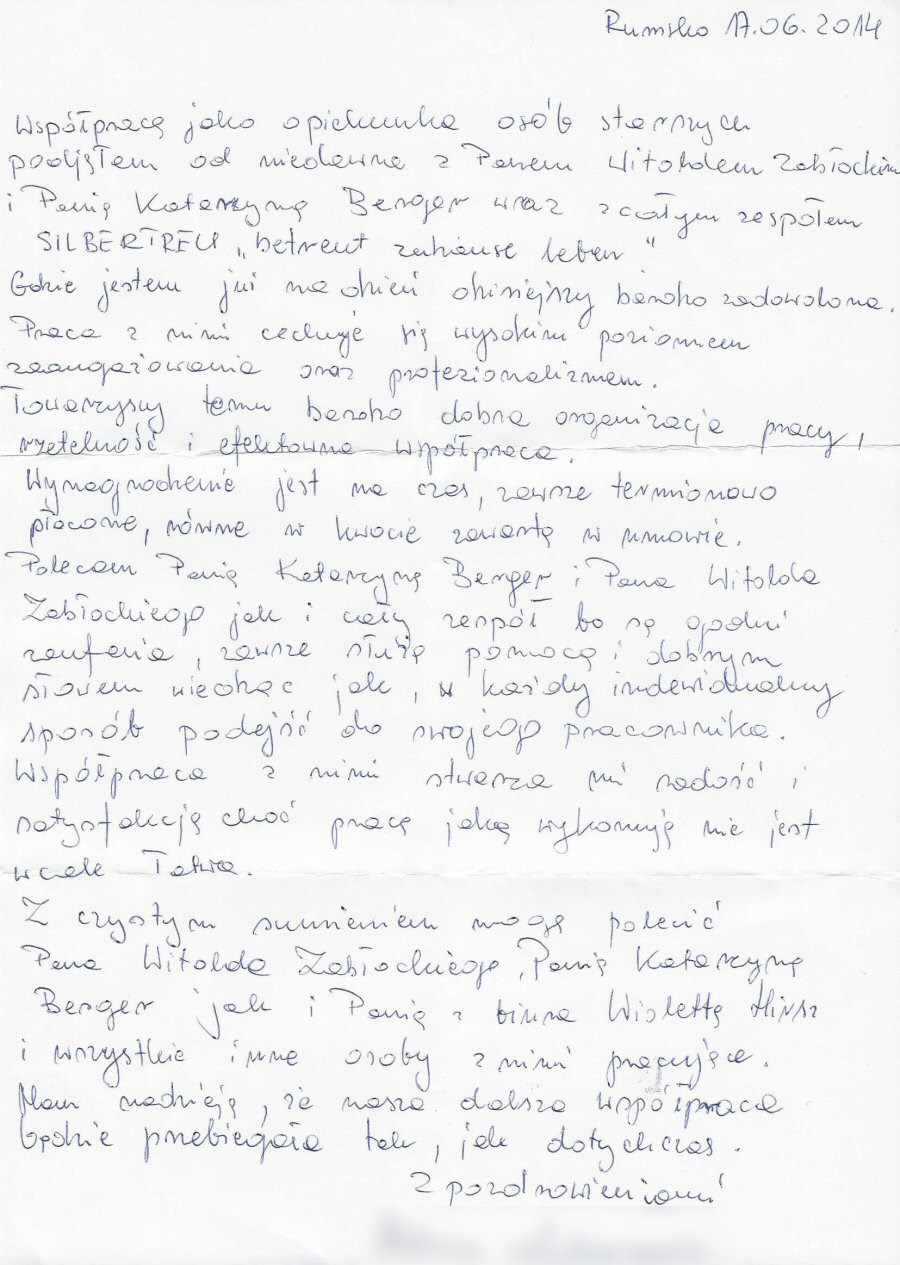 Rumsko 17.06.2014
Współpracę jako opiekunka osób starszych
podjęłam od niedawna z Panem Witoldem Zabłockim
i Panią Katarzyną Berger wraz z całym zespołem
SILBERTREU „betreut zuhause leben"
Gdzie jestem już na dzień dzisiejszy bardzo zadowolona.
Praca z nimi cechuje się wysokim poziomem
zaangażowania oraz profezionalizmem.
Towarzyszy temu bardzo dobra organizacja pracy,
rzetelność i efektowna współpraca.
Wynagrodzenie jest na czas, zawsze terminowo
płacone, równe w kwocie zawartą w umowie.
Polecam Panią Katarzynę Berger i Pana Witolda
Zabłockiego jak i cały zespół bo są godni
zaufania, zawsze służą pomocą i dobrym
słowem wiedząc jak, w każdy indewidualny
sposób podejść do swojego pracownika.
Współpraca z nimi stwarza mi radość i
satysfakcję choć pracę jaką wykonuję nie jest
wcale łatwa.
Z czystym sumieniem mogę polecić
Pana Witolda Zabłockiego, Panią Katarzynę
Berger jak i Panią z biura Wiolettę
i wszystkie inne osoby z nimi pracujące.
Mam nadzieję, że nasza dalsza współpraca
będzie przebiegała tak, jak dotychczas.
Z pozdrowieniami